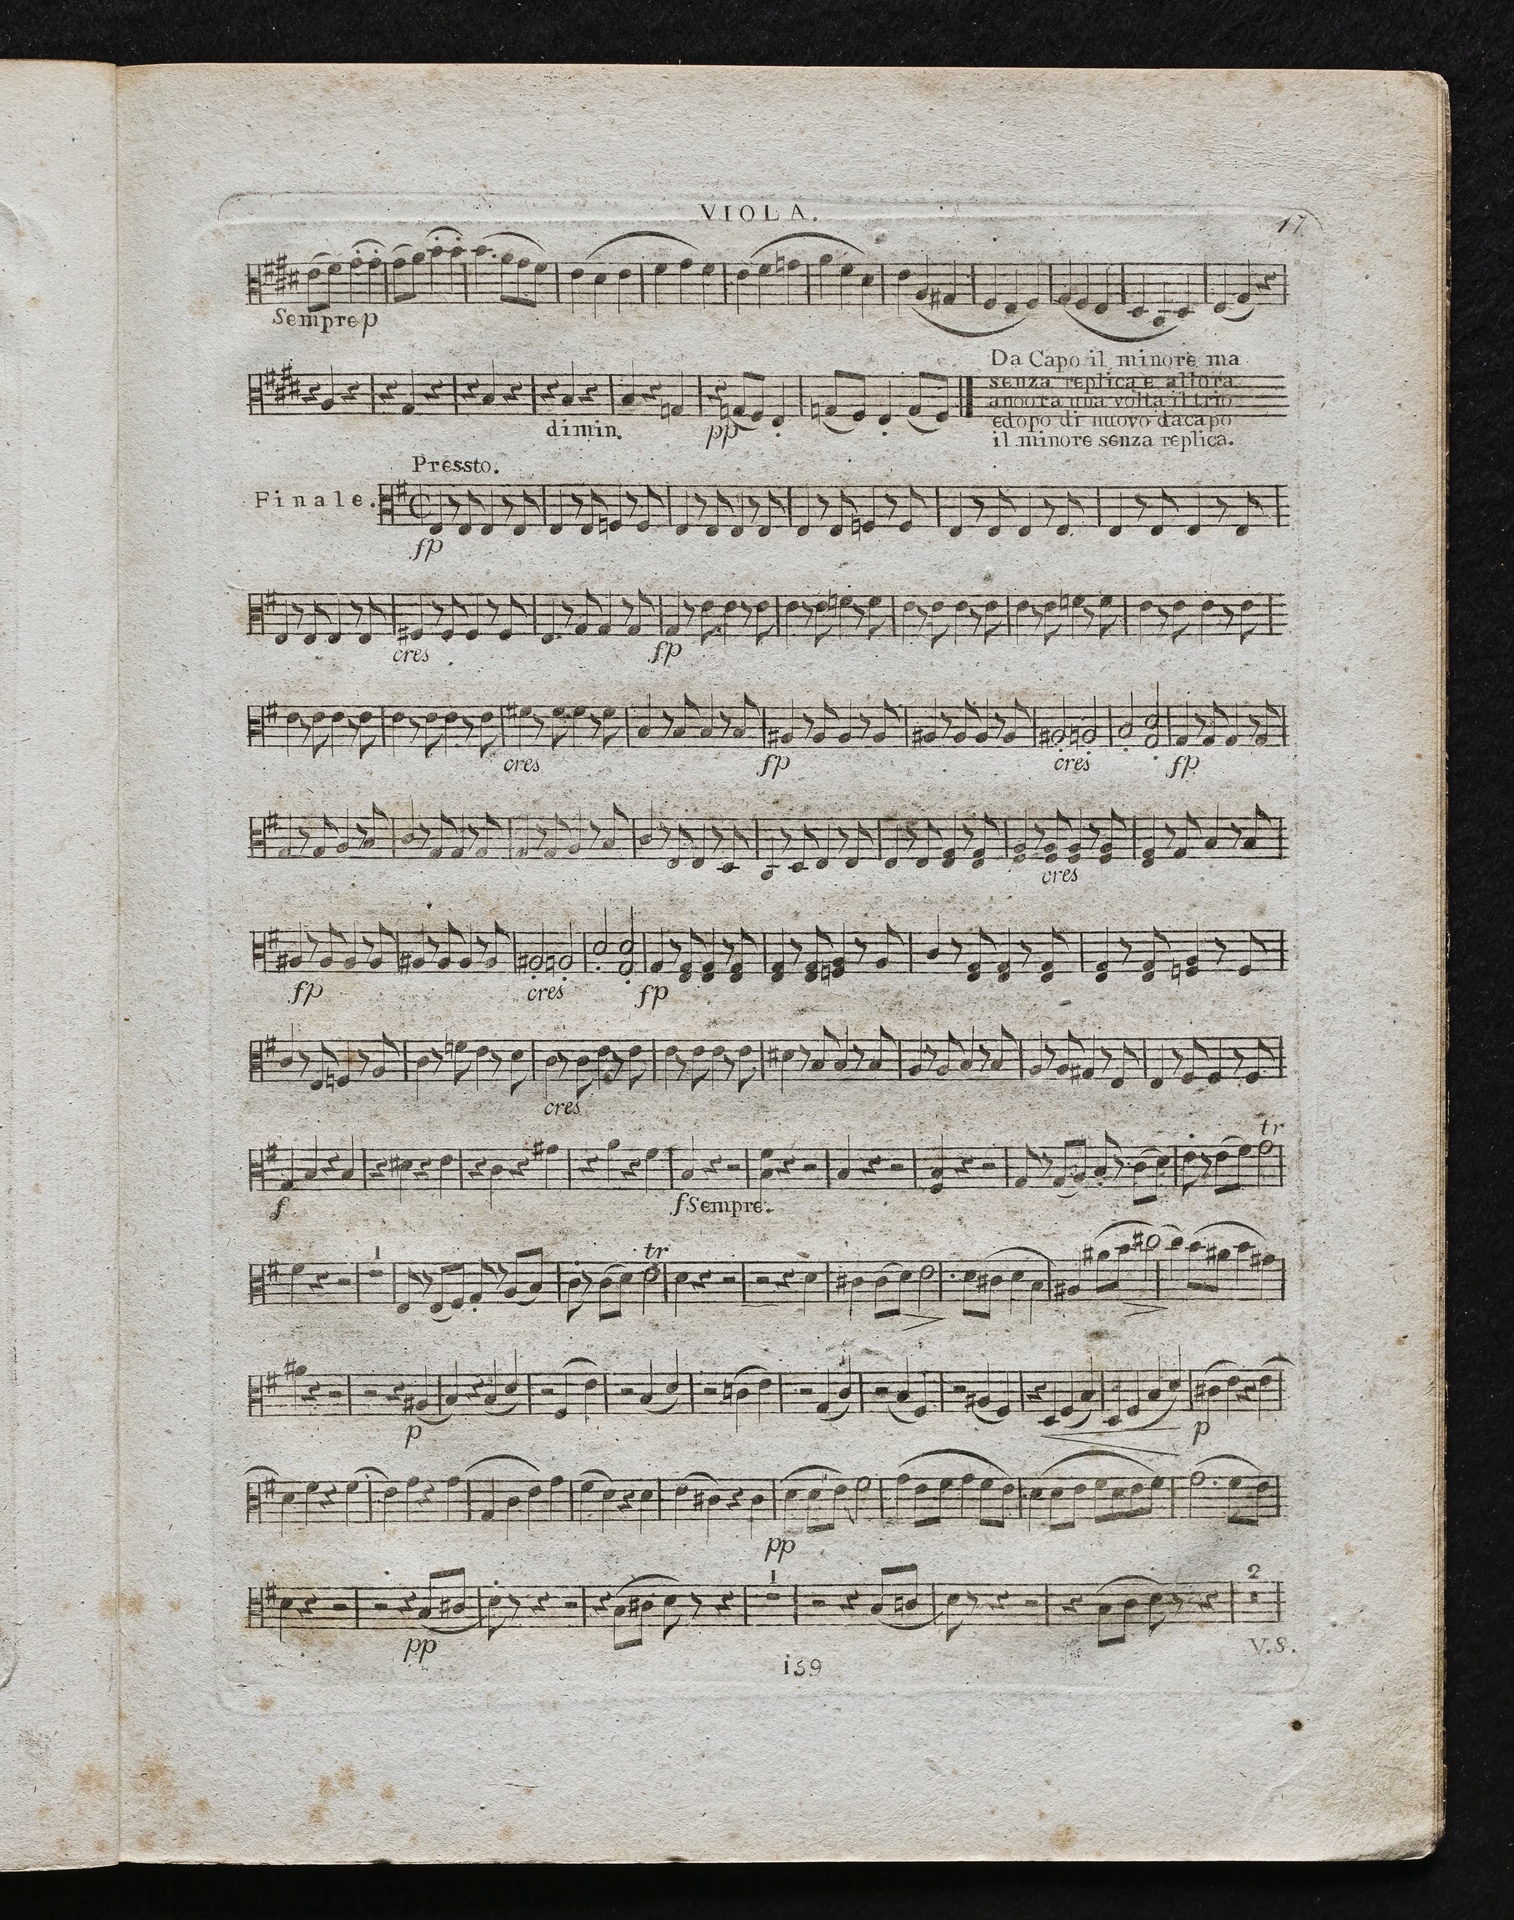 VIOLA.
17
Sempre p
Da Capo il minore ma
senza replica e allora
ancora una volta il trio
e dopo di nuovo da capo
il minore senza replica.
dimin.
pp
Pressto.
Finale.
fp
cres
fp
cres
fp
cres
fp
cres
fp
cres
fp
cres
tr
f
f Sempre.
1
tr
p
p
pp
1
2
pp
V.S.
159